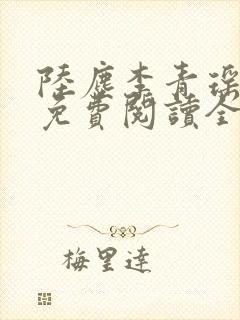 陸塵李青瑶
免費閱讀全
梅里達